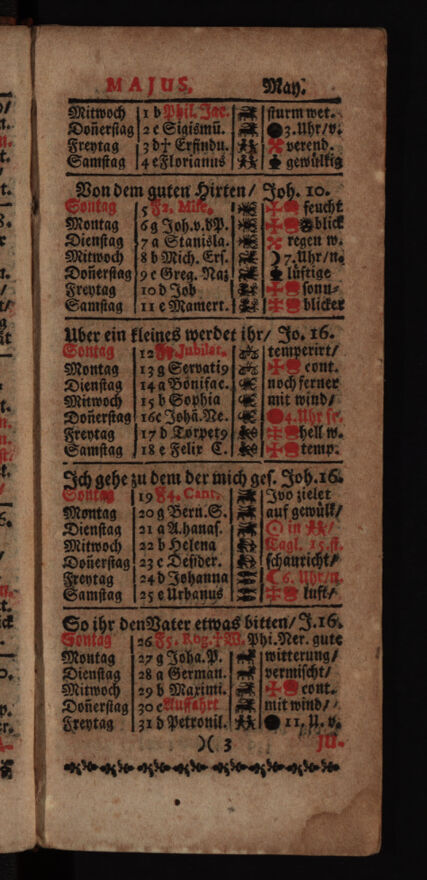 MAJUS. May.
Mitwoch 1 b Phil. Jac. sturm wet.
Doñerstag 2 c Sigismũ. 3. Uhr/v.
Freytag 3 d † Erfindu. verend.
Samstag 4 e Florianus gewülkig
Von dem guten Hirten/ Joh. 10.
Sontag 5 F2. Mise. feucht
Montag 6 g Joh. v. dP. blick
Dienstag 7 a Stanisla. regen w.
Mitwoch 8 b Mich. Ers. 7. Uhr/n.
Doñerstag 9 c Greg. Naz lüftige
Freytag 10 d Job sonn-
Samstag 11 e Mamert. blicker
Uber ein kleines werdet ihr/ Jo. 16.
Sontag 12 Jubilat. temperirt/
Montag 13 g Servati9 cont.
Dienstag 14 a Bonifac. noch ferner
Mitwoch 15 b Sophia mit wind/
Doñerstag 16 c Johã. Ne. 4. Uhr fr.
Freytag 17 d Torpet9 hell w.
Samstag 18 e Felix C. temp.
Ich gehe zu dem der mich ges. Joh. 16.
Sontag 19 F4. Cant. Ivo zielet
Montag 20 g Bern. S. auf gewülk/
Dienstag 21 a A.hanas. in
Mitwoch 22 b Helena Tagl. 15. st.
Doñerstag 23 c Desider. schauricht/
Freytag 24 d Johanna 6. Uhr/n.
Samstag 25 e Urbanus luft/
So ihr den Vater etwas bitten/ J. 16.
Sontag 26 F5. Rog. † W. Phi. Ner. gute
Montag 27 g Joha. P. witterung/
Dienstag 28 a German. vermischt/
Mitwoch 29 b Maximi. cont.
Doñerstag 30 c Auffahrt mit wind/
Freytag 31 d Petronil. 11. U. v.
)( 3 JU.